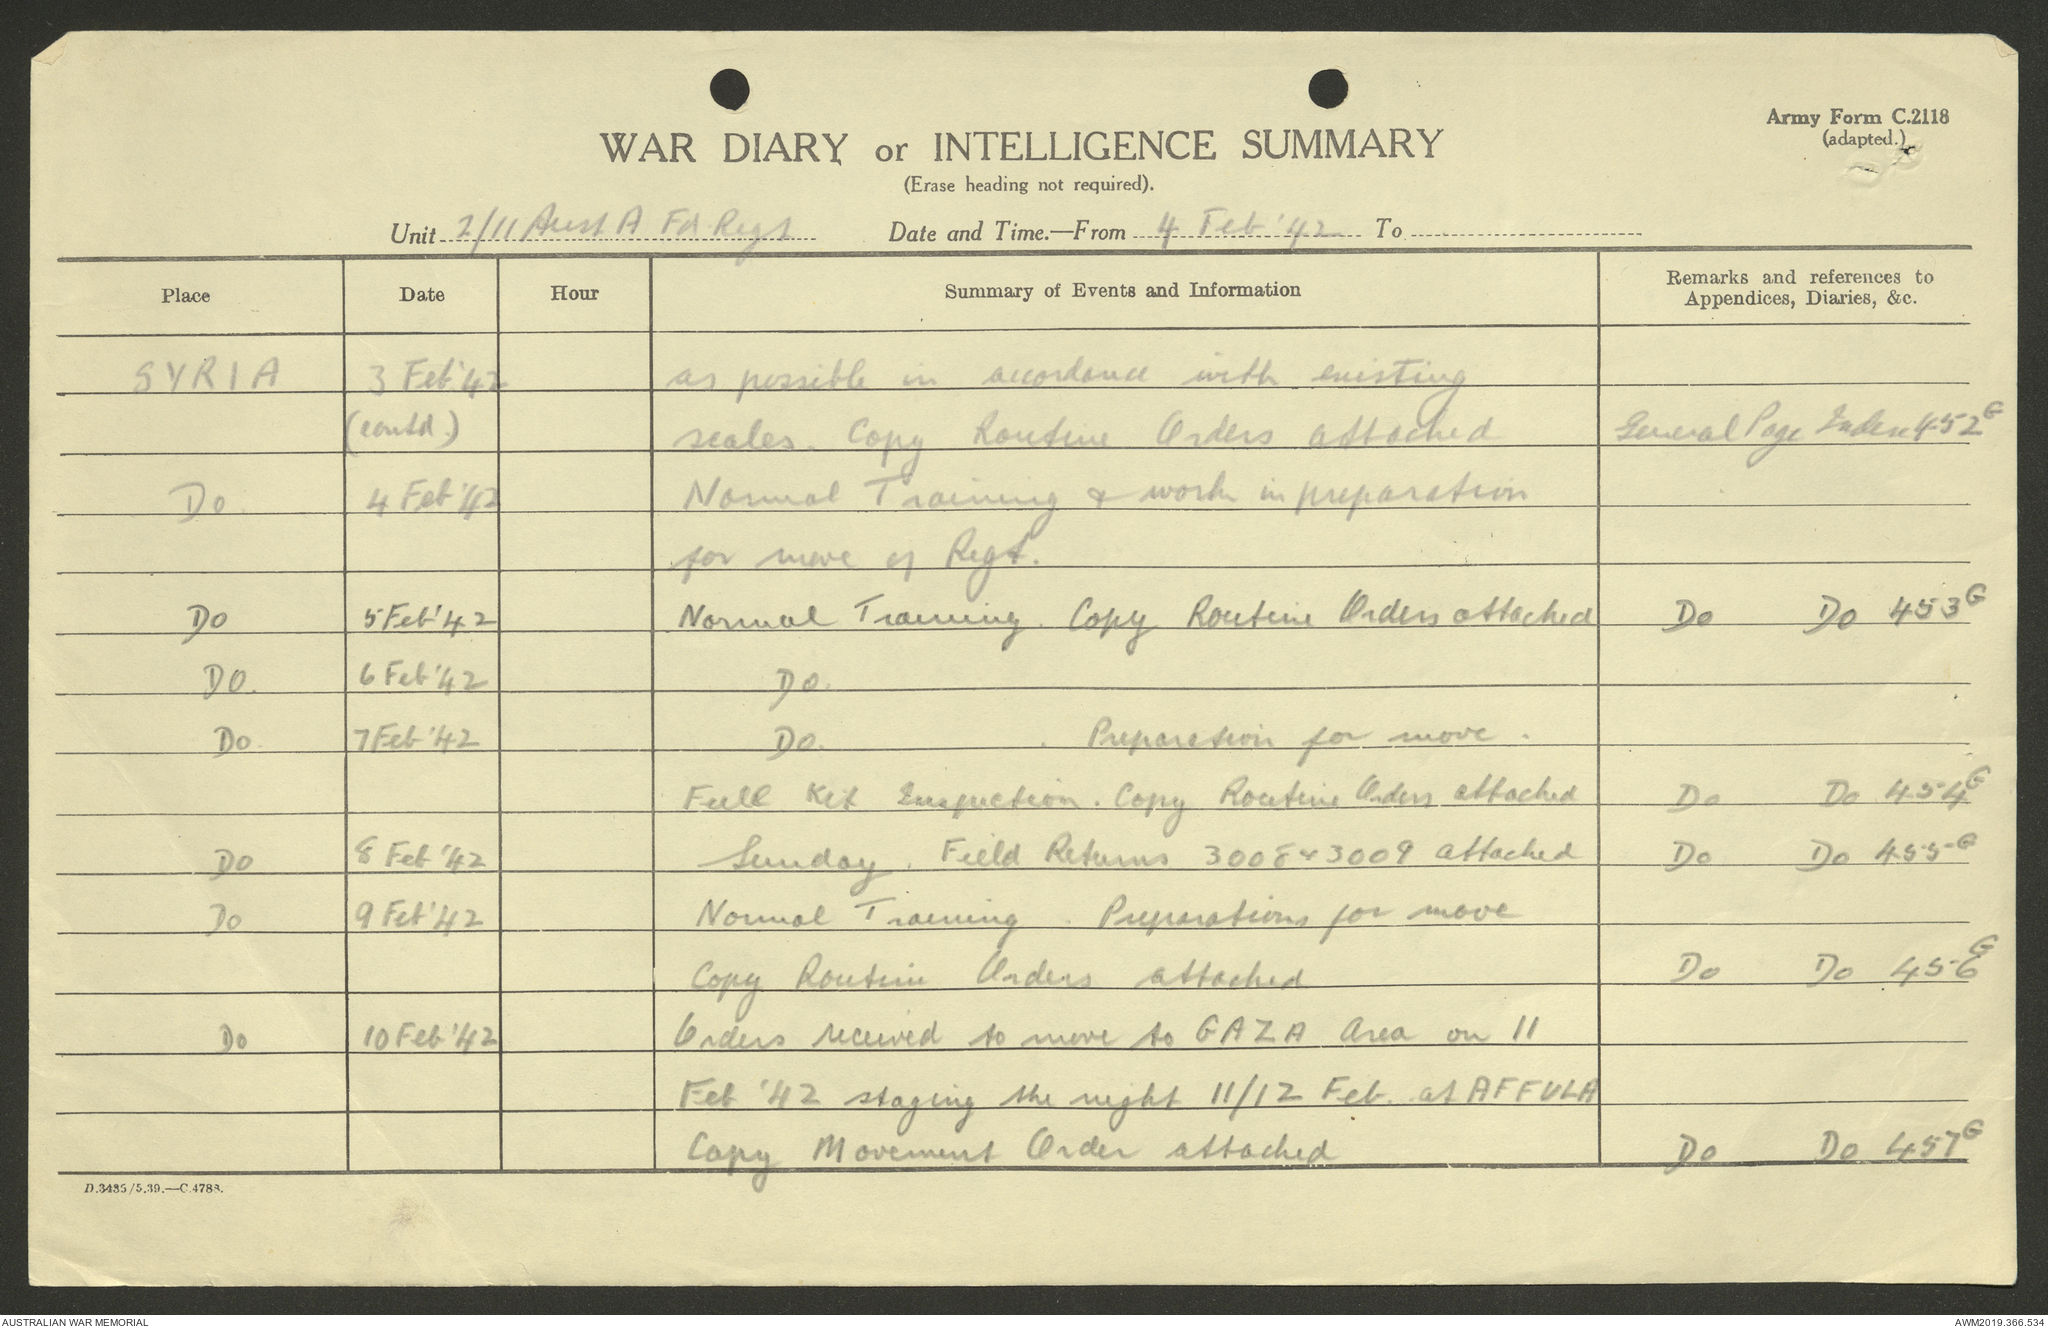 Army Form C.2118
(adapted.)
WAR DIARY or INTELLIGENCE SUMMARY
(Erase heading not required).
Unit 2/11 Aust A Fd Regt Date and Time.—From 4 Feb '42 To
Place Date Hour Summary of Events and Information Remarks and references to Appendices, Diaries, &c.
SYRIA 3 Feb '42 as possible in accordance with existing
(contd.) scales. Copy Routine Orders attached General Page Index 452G
Do. 4 Feb '42 Normal Training & work in preparation
for move of Regt.
Do 5 Feb '42 Normal Training. Copy Routine Orders attached Do Do 453G
DO. 6 Feb '42 Do.
Do. 7 Feb '42 Do. . Preparation for move.
Full Kit Inspection. Copy Routine Orders attached Do Do 454G
Do 8 Feb '42 Sunday. Field Returns 3008 & 3009 attached Do Do 455G
Do 9 Feb '42 Normal Training. Preparations for move
Copy Routine Orders attached Do Do 456G
Do 10 Feb '42 Orders received to move to GAZA Area on 11
Feb '42 staging the night 11/12 Feb. at AFFULA
Copy Movement Order attached Do Do 457G
D.3435/5.39.—C.4788.
AUSTRALIAN WAR MEMORIAL AWM2019.366.534